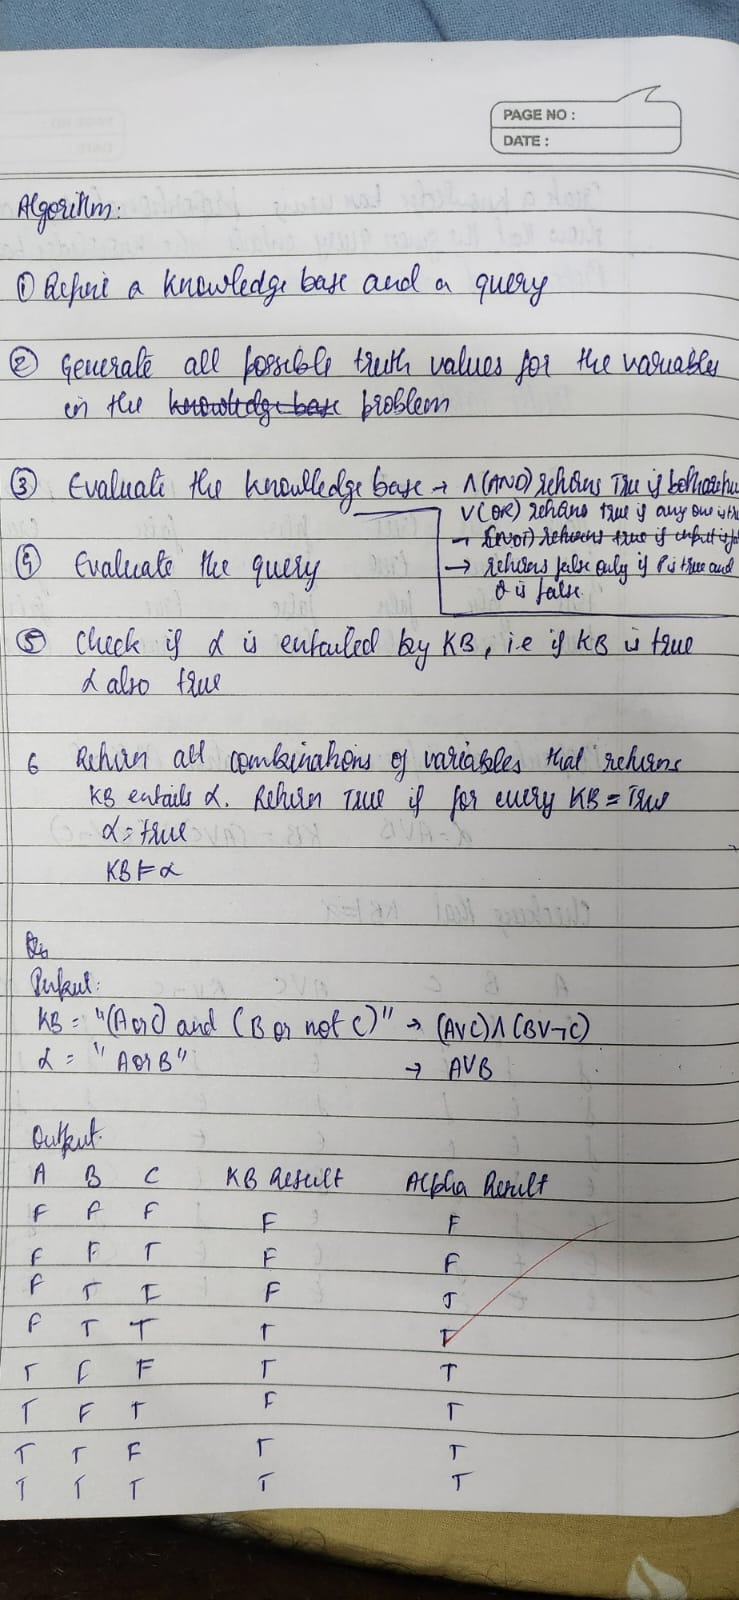 PAGE NO :
DATE :
Algorithm:
① Define a knowledge base and a query
② Generate all possible truth values for the variables
in the knowledge base problem
③ Evaluate the knowledge base → ∧(AND) returns True if both
∨(OR) returns true if any one is
→ (NOT) returns true if input is
④ Evaluate the query → returns false only if P is true and
Q is false.
⑤ Check if α is entailed by KB, i.e if KB is true
α also true
6 Return all combinations of variables that returns
KB entails α. Return True if for every KB = True
α = true
KB ⊨ α
Output:
KB = "(A or C) and (B or not C)" → (A∨C)∧(B∨¬C)
α = "A or B" → A∨B
Output.
A B C KB Result Alpha Result
F F F F F
F F T F F
F T F F T
F T T T T
T F F T T
T F T F T
T T F T T
T T T T T